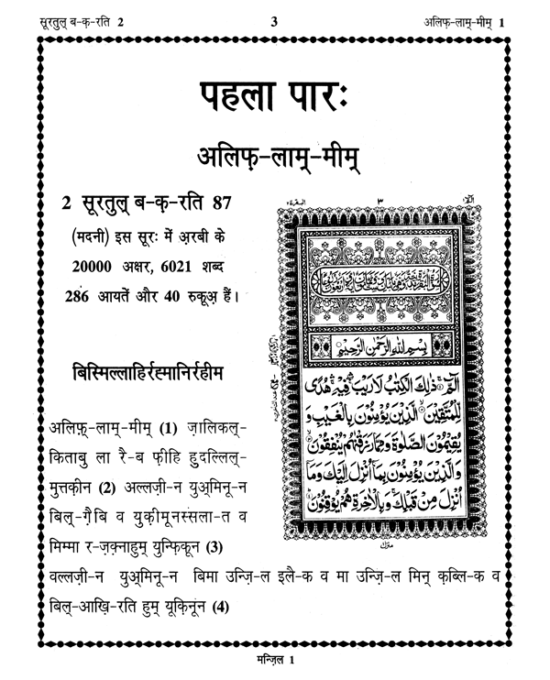 सूरतुल् ब-क़-रति 2
3
अलिफ़्-लाम्-मीम् 1
पहला पारः
अलिफ़्-लाम्-मीम्
2 सूरतुल् ब-क़-रति 87
(मदनी) इस सूरः में अ़रबी के
20000 अक्षर, 6021 शब्द
286 आयतें और 40 रुकूअ़ हैं।
بِسْمِ اللهِ الرَّحْمٰنِ الرَّحِيْمِ
الٓمّٓ ذٰلِكَ الْكِتٰبُ لَا رَيْبَ فِيْهِ هُدًى
لِّلْمُتَّقِيْنَ الَّذِيْنَ يُؤْمِنُوْنَ بِالْغَيْبِ وَ
يُقِيْمُوْنَ الصَّلٰوةَ وَمِمَّا رَزَقْنٰهُمْ يُنْفِقُوْنَ
وَالَّذِيْنَ يُؤْمِنُوْنَ بِمَآ اُنْزِلَ اِلَيْكَ وَمَآ
اُنْزِلَ مِنْ قَبْلِكَ وَبِالْاٰخِرَةِ هُمْ يُوْقِنُوْنَ
बिस्मिल्लाहिर्रह्मानिर्रहीम
अलिफ़्-लाम्-मीम् (1) ज़ालिकल्-
किताबु ला रै-ब फ़ीहि हुदल्लिल्-
मुत्तक़ीन (2) अल्लज़ी-न युअ्मिनू-न
बिल्-ग़ैबि व युक़ीमूनस्सला-त व
मिम्मा र-ज़क़्नाहुम् युन्फ़िक़ून (3)
वल्लज़ी-न युअ्मिनू-न बिमा उन्ज़ि-ल इलै-क व मा उन्ज़ि-ल मिन् क़ब्लि-क व
बिल्-आख़ि-रति हुम् यूक़िनून (4)
मन्ज़िल 1